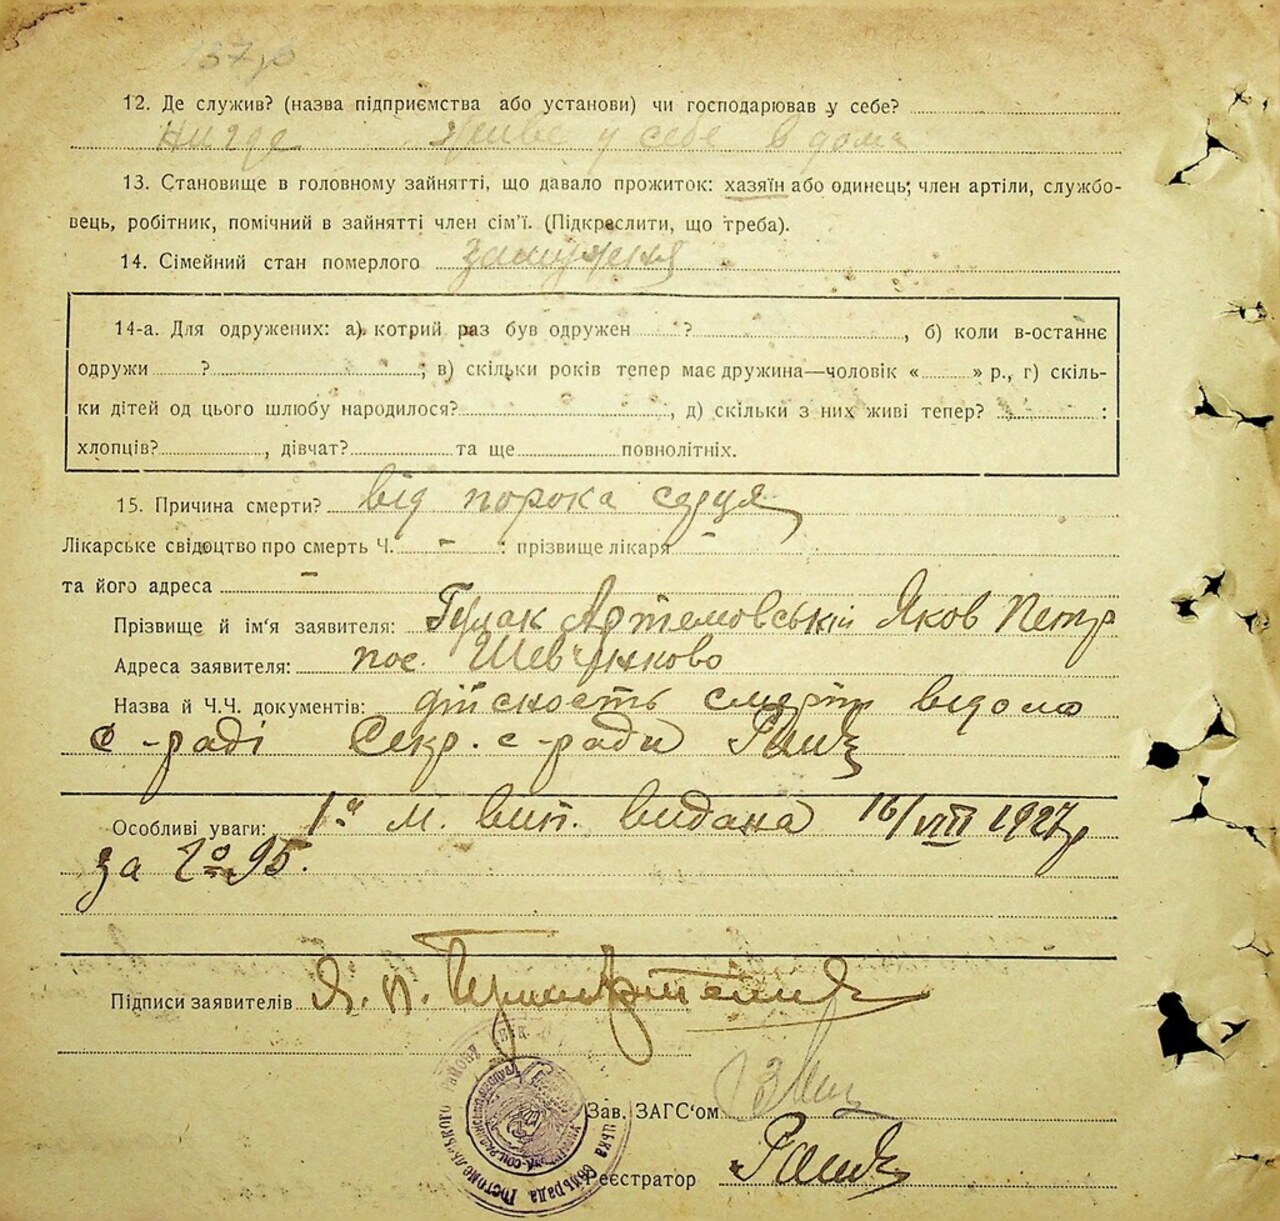 12. Де служив? (назва підприємства або установи) чи господарював у себе?
нигде живе у себе в дома
13. Становище в головному зайнятті, що давало прожиток: хазяїн або одинець; член артіли, службо-
вець, робітник, помічний в зайнятті член сім'ї. (Підкреслити, що треба).
14. Сімейний стан померлого замужня
14-а. Для одружених: а) котрий раз був одружен ? , б) коли в-останнє
одружи ? ; в) скільки років тепер має дружина—чоловік « » р., г) скіль-
ки дітей од цього шлюбу народилося? , д) скільки з них живі тепер? :
хлопців? , дівчат? та ще повнолітніх.
15. Причина смерти? від порока сердця
Лікарське свідоцтво про смерть Ч. - : прізвище лікаря -
та його адреса -
Прізвище й ім'я заявителя: Гулак Артемовській Яков Петр
Адреса заявителя: пос. Шевченково
Назва й Ч.Ч. документів: дійсность смерти відома
с-раді Секр. с-ради
Особливі уваги: 1ª м. вип. видана 16/VIII 1927р
за № 95.
Підписи заявителів Я. П.
Зав. ЗАГС'ом
Реєстратор
Гостомельського району
сельрада